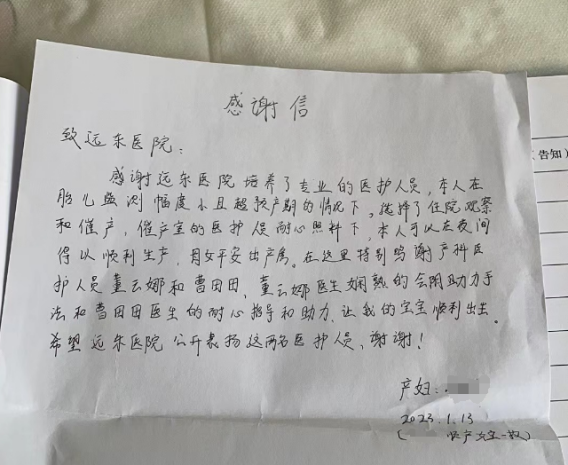 感谢信
致远东医院：
感谢远东医院培养了专业的医护人员，本人在
胎儿监测幅度小且超预产期的情况下，选择了住院观察
和催产，催产室的医护人员耐心照料下，本人可以在夜间
得以顺利生产，母女平安出产房。在这里特别鸣谢产科医
护人员董云娜和曹田田，董云娜医生娴熟的会阴助力手
法和曹田田医生的耐心指导和助力，让我的宝宝顺利出生。
希望远东医院公开表扬这两名医护人员，谢谢！
产妇：
2023.1.13
告知）